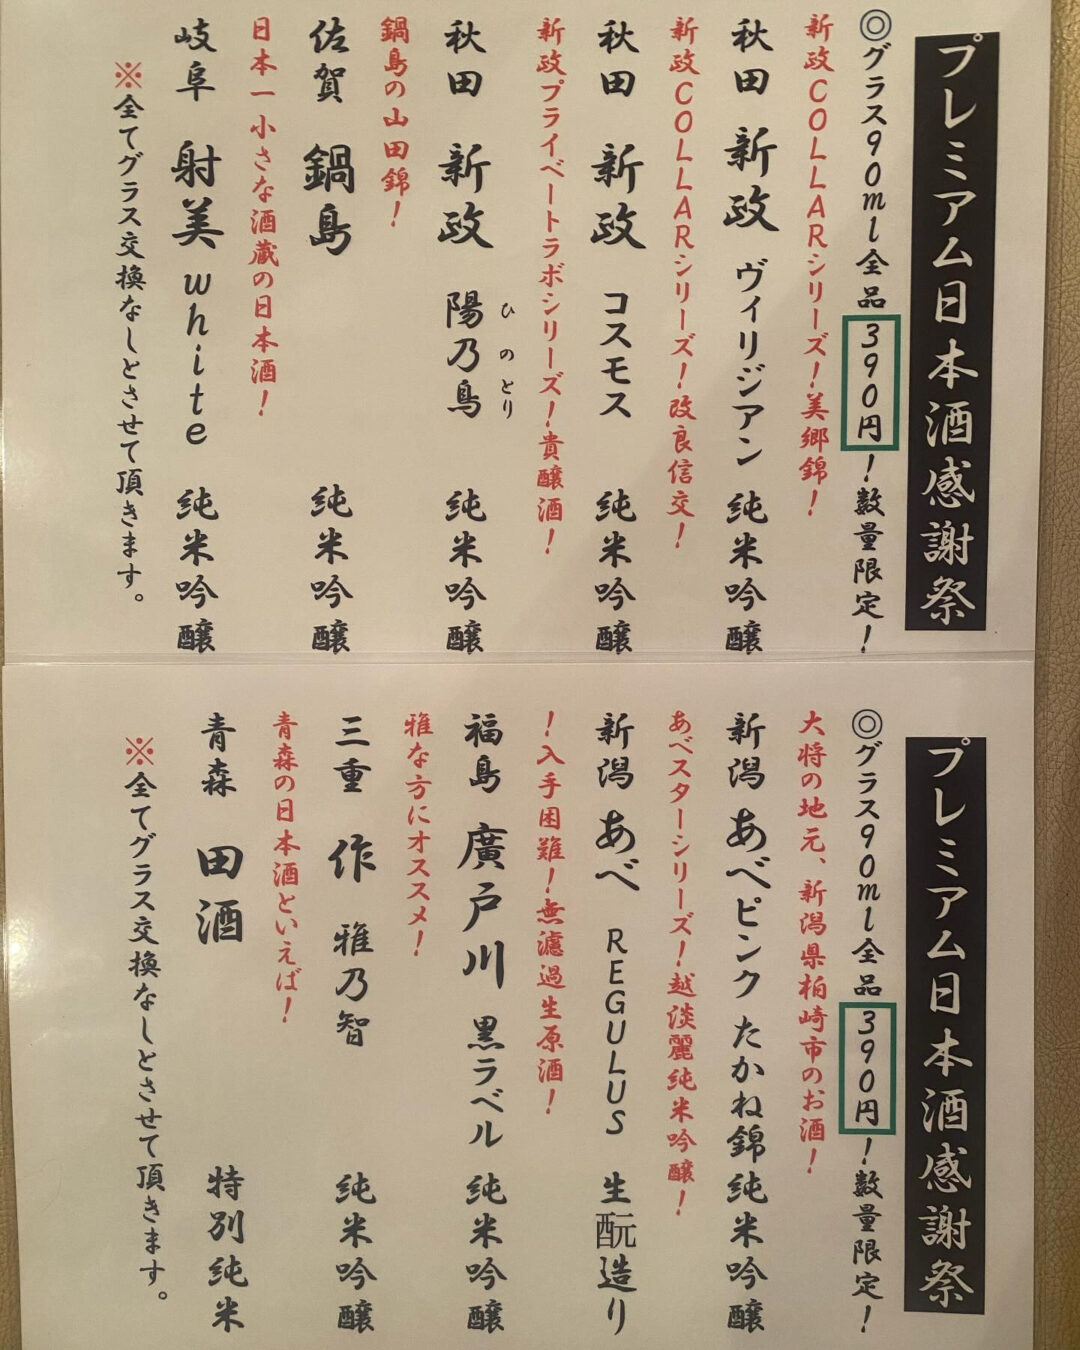 プレミアム日本酒感謝祭
◎グラス90ml全品390円!数量限定!
新政COLLARシリーズ!美郷錦!
秋田 新政 ヴィリジアン 純米吟醸
新政COLLARシリーズ!改良信交!
秋田 新政 コスモス 純米吟醸
新政プライベートラボシリーズ!貴醸酒!
ひのとり
秋田 新政 陽乃鳥 純米吟醸
鍋島の山田錦!
佐賀 鍋島 純米吟醸
日本一小さな酒蔵の日本酒!
岐阜 射美 white 純米吟醸
※全てグラス交換なしとさせて頂きます。
プレミアム日本酒感謝祭
◎グラス90ml全品390円!数量限定!
大将の地元、新潟県柏崎市のお酒!
新潟 あべピンク たかね錦 純米吟醸
あべスターシリーズ!越淡麗純米吟醸!
新潟 あべ REGULUS 生酛造り
!入手困難!無濾過生原酒!
福島 廣戸川 黒ラベル 純米吟醸
雅な方にオススメ!
三重 作 雅乃智 純米吟醸
青森の日本酒といえば!
青森 田酒 特別純米
※全てグラス交換なしとさせて頂きます。